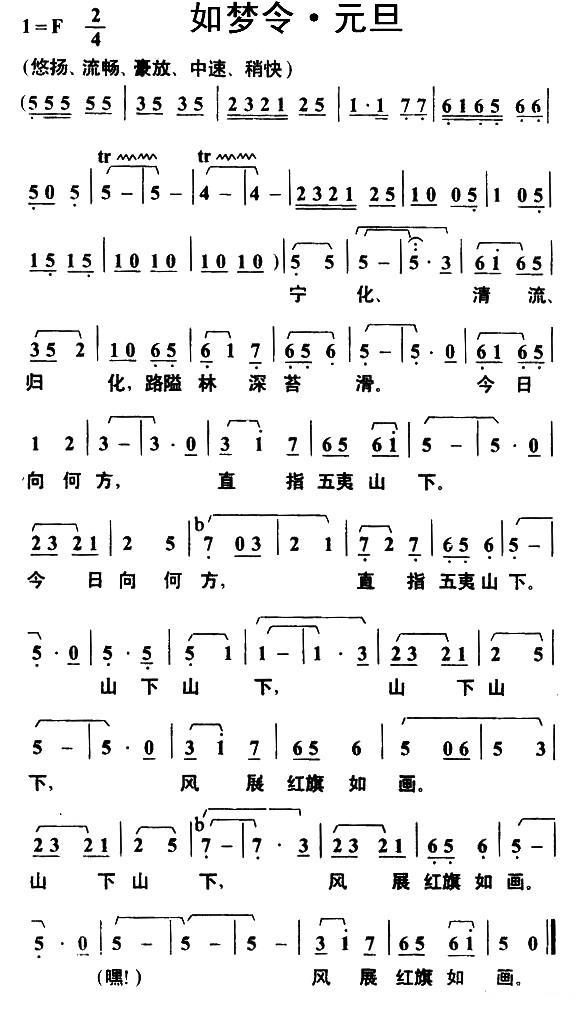 如梦令·元旦
1=F 2/4
(悠扬、流畅、豪放、中速、稍快)
(5 5 5 5 5 | 3 5 3 5 | 2 3 2 1 2 5 | 1 · 1 7 7 | 6 1 6 5 6 6 |
tr tr
5 0 5 | 5 – | 5 – | 4 – | 4 – | 2 3 2 1 2 5 | 1 0 0 5 | 1 0 5 |
1 5 1 5 | 1 0 1 0 | 1 0 1 0 ) | 5 5 | 5 – | 5 · 3 | 6 1 6 5 |
宁 化、 清 流、
3 5 2 | 1 0 6 5 | 6 1 7 | 6 5 6 | 5 – | 5 · 0 | 6 1 6 5 |
归 化, 路隘 林 深 苔 滑。 今 日
1 2 | 3 – | 3 · 0 | 3 1 7 | 6 5 6 1 | 5 – | 5 · 0 |
向 何 方, 直 指 五夷 山 下。
2 3 2 1 | 2 5 | b7 0 3 | 2 1 | 7 2 7 | 6 5 6 | 5 – |
今 日 向 何 方, 直 指 五夷 山 下。
5 · 0 | 5 · 5 | 5 1 | 1 – | 1 · 3 | 2 3 2 1 | 2 5 |
山 下 山 下, 山 下 山
5 – | 5 · 0 | 3 1 7 | 6 5 6 | 5 0 6 | 5 3 |
下, 风 展 红旗 如 画。
2 3 2 1 | 2 5 | b7 – | 7 · 3 | 2 3 2 1 | 6 5 6 | 5 – |
山 下 山 下, 风 展 红旗 如 画。
5 · 0 | 5 – | 5 – | 5 – | 3 1 7 | 6 5 6 1 | 5 0 ‖
(嘿!) 风 展 红旗 如 画。